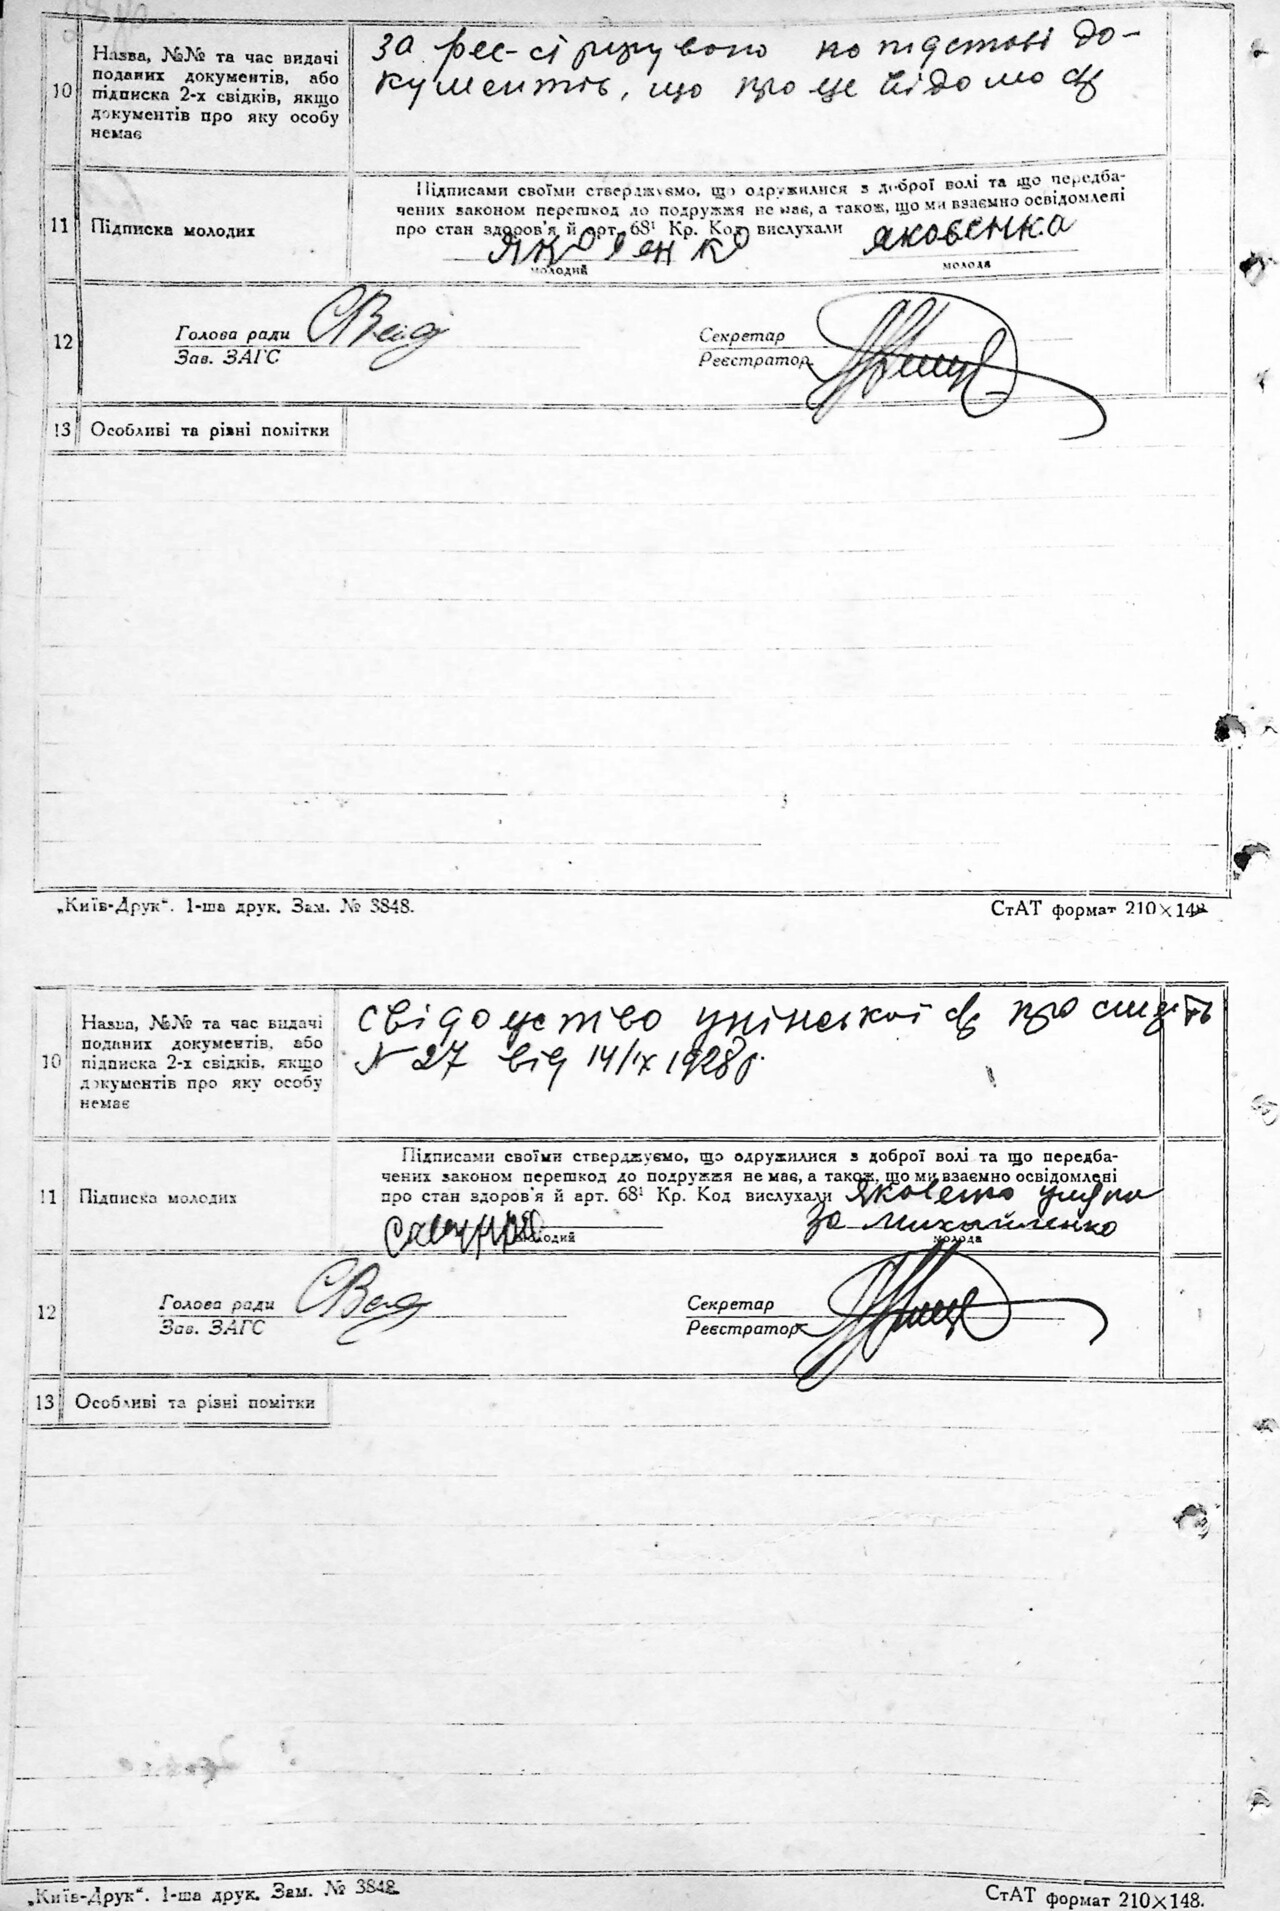 10
Назва, №№ та час видачі
поданих документів, або
підписка 2-х свідків, якщо
документів про яку особу
немає
за реє-стрировано на підставі до-
кументів, що про це відомо
11
Підписка молодих
Підписами своїми стверджуємо, що одружилися з доброї волі та що передба-
чених законом перешкод до подружжя не має, а також, що ми взаємно освідомлені
про стан здоров'я й арт. 68¹ Кр. Код вислухали
Яковенко
яковенка
молодий
молода
12
Голова ради
Зав. ЗАГС
Секретар
Реєстратор
13
Особливі та різні помітки
„Київ-Друк“. 1-ша друк. Зам. № 3848.
СтАТ формат 210×148
10
Назва, №№ та час видачі
поданих документів, або
підписка 2-х свідків, якщо
документів про яку особу
немає
свідоцтво про смерть
N 27 від 14/IX 1928р.
11
Підписка молодих
Підписами своїми стверджуємо, що одружилися з доброї волі та що передба-
чених законом перешкод до подружжя не має, а також, що ми взаємно освідомлені
про стан здоров'я й арт. 68¹ Кр. Код вислухали
за Михайленко
молодий
молода
12
Голова ради
Зав. ЗАГС
Секретар
Реєстратор
13
Особливі та різні помітки
„Київ-Друк“. 1-ша друк. Зам. № 3848.
СтАТ формат 210×148.